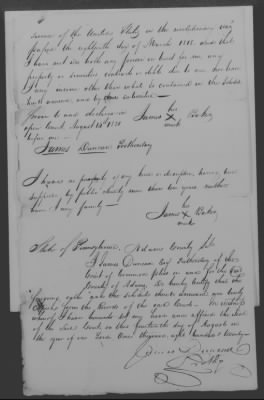 service of the United States in the revolutionary war
passed the eighteenth day of March 1818 and that
I have not nor hath any person in trust for me any
property or securities contracts or debts due to me nor have
I any income other than what is contained in the schedule
hereto annexed and by me subscribed
Sworn to and declared in
open Court August 14th 1820
before me
James his X mark Baker
James Duncan Prothonotary
I have no property of any kind or description, having been
supported by public charity more than ten years, neither
have I any family
James his X mark Baker
State of Pennsylvania, Adams County Ss
I James Duncan Esq Prothonotary of the
Court of Common pleas in and for the said
County of Adams, Do hereby Certify that the
foregoing oath and the schedule thereto annexed are truly
Copied from the Records of the said Court. In witness
whereof I have hereunto set my hand and affixed the seal
of the said Court on this fourteenth day of August in
the year of our Lord One thousand eight hundred & twenty
James Duncan
Prothy